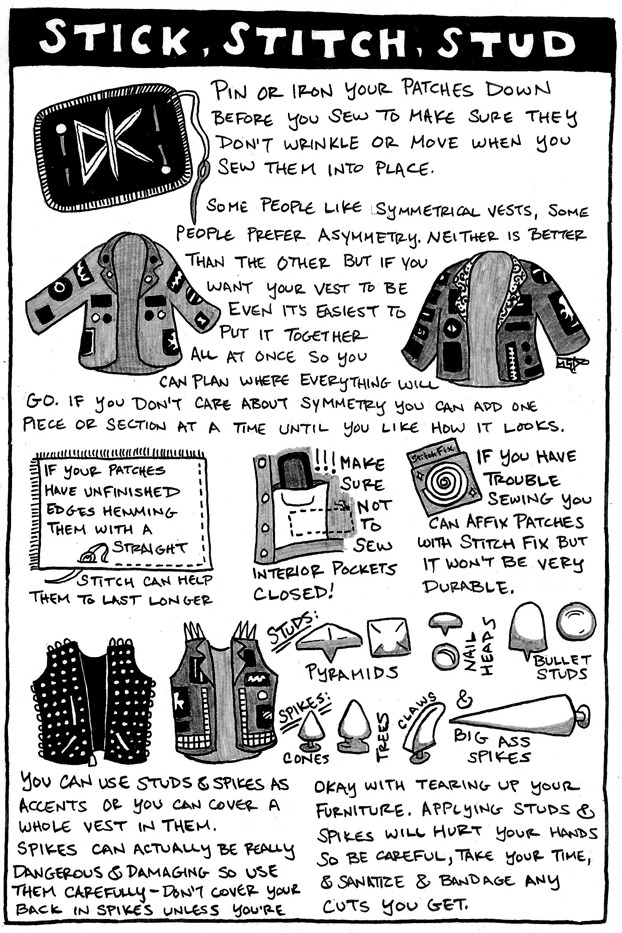 STICK, STITCH, STUD
PIN OR IRON YOUR PATCHES DOWN
BEFORE YOU SEW TO MAKE SURE THEY
DON'T WRINKLE OR MOVE WHEN YOU
SEW THEM INTO PLACE.
DK
SOME PEOPLE LIKE SYMMETRICAL VESTS, SOME
PEOPLE PREFER ASYMMETRY. NEITHER IS BETTER
THAN THE OTHER BUT IF YOU
WANT YOUR VEST TO BE
EVEN IT'S EASIEST TO
PUT IT TOGETHER
ALL AT ONCE SO YOU
CAN PLAN WHERE EVERYTHING WILL
GO. IF YOU DON'T CARE ABOUT SYMMETRY YOU CAN ADD ONE
PIECE OR SECTION AT A TIME UNTIL YOU LIKE HOW IT LOOKS.
IF YOUR PATCHES
HAVE UNFINISHED
EDGES HEMMING
THEM WITH A
STRAIGHT
STITCH CAN HELP
THEM TO LAST LONGER
!!! MAKE
SURE
NOT
TO
SEW
INTERIOR POCKETS
CLOSED!
Stitch Fix
IF YOU HAVE
TROUBLE
SEWING YOU
CAN AFFIX PATCHES
WITH STITCH FIX BUT
IT WON'T BE VERY
DURABLE.
STUDS:
PYRAMIDS
NAIL
HEAPS
BULLET
STUDS
SPIKES:
CONES
TREES
CLAWS
&
BIG ASS
SPIKES
YOU CAN USE STUDS & SPIKES AS
ACCENTS OR YOU CAN COVER A
WHOLE VEST IN THEM.
SPIKES CAN ACTUALLY BE REALLY
DANGEROUS & DAMAGING SO USE
THEM CAREFULLY - DON'T COVER YOUR
BACK IN SPIKES UNLESS YOU'RE
OKAY WITH TEARING UP YOUR
FURNITURE. APPLYING STUDS &
SPIKES WILL HURT YOUR HANDS
SO BE CAREFUL, TAKE YOUR TIME,
& SANATIZE & BANDAGE ANY
CUTS YOU GET.